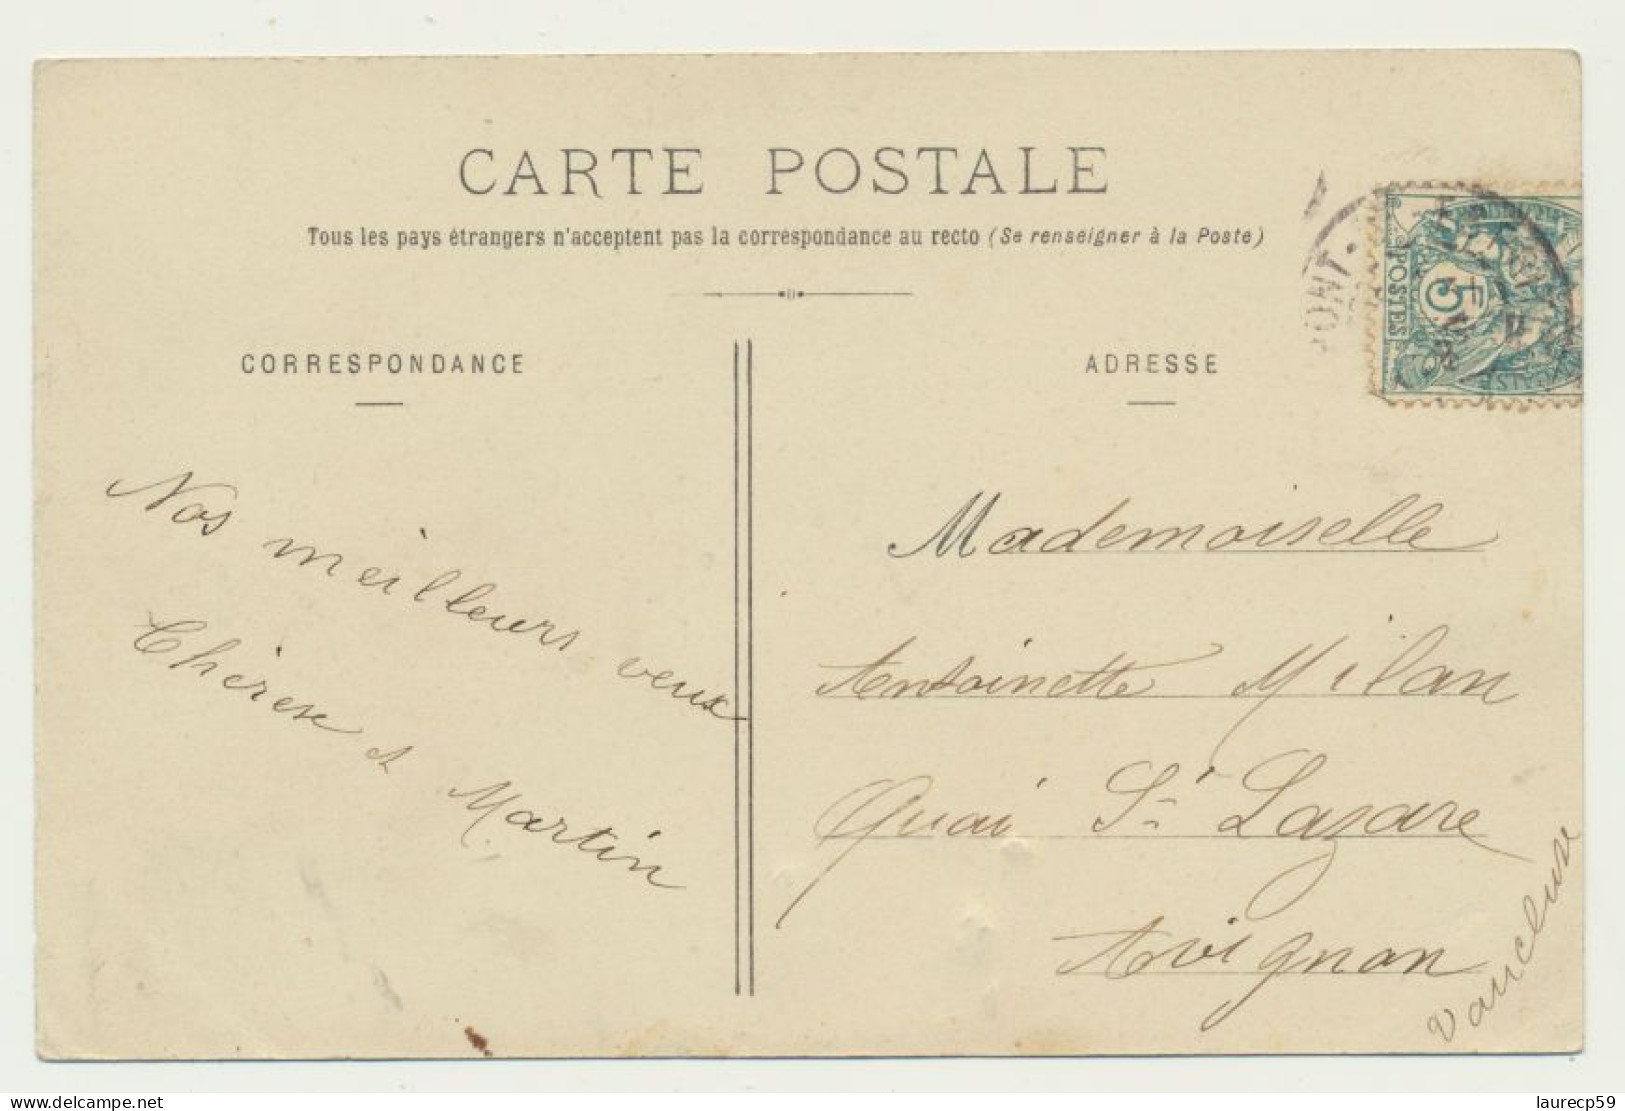 CARTE POSTALE
Tous les pays étrangers n'acceptent pas la correspondance au recto (Se renseigner à la Poste)
CORRESPONDANCE
Nos meilleurs veux
Thérèse et Martin
ADRESSE
Mademoiselle
Antoinette Milan
Quai St Lazare
Avignon
Vaucluse
5
POSTES
PONT
delcampe.net
laurecp59